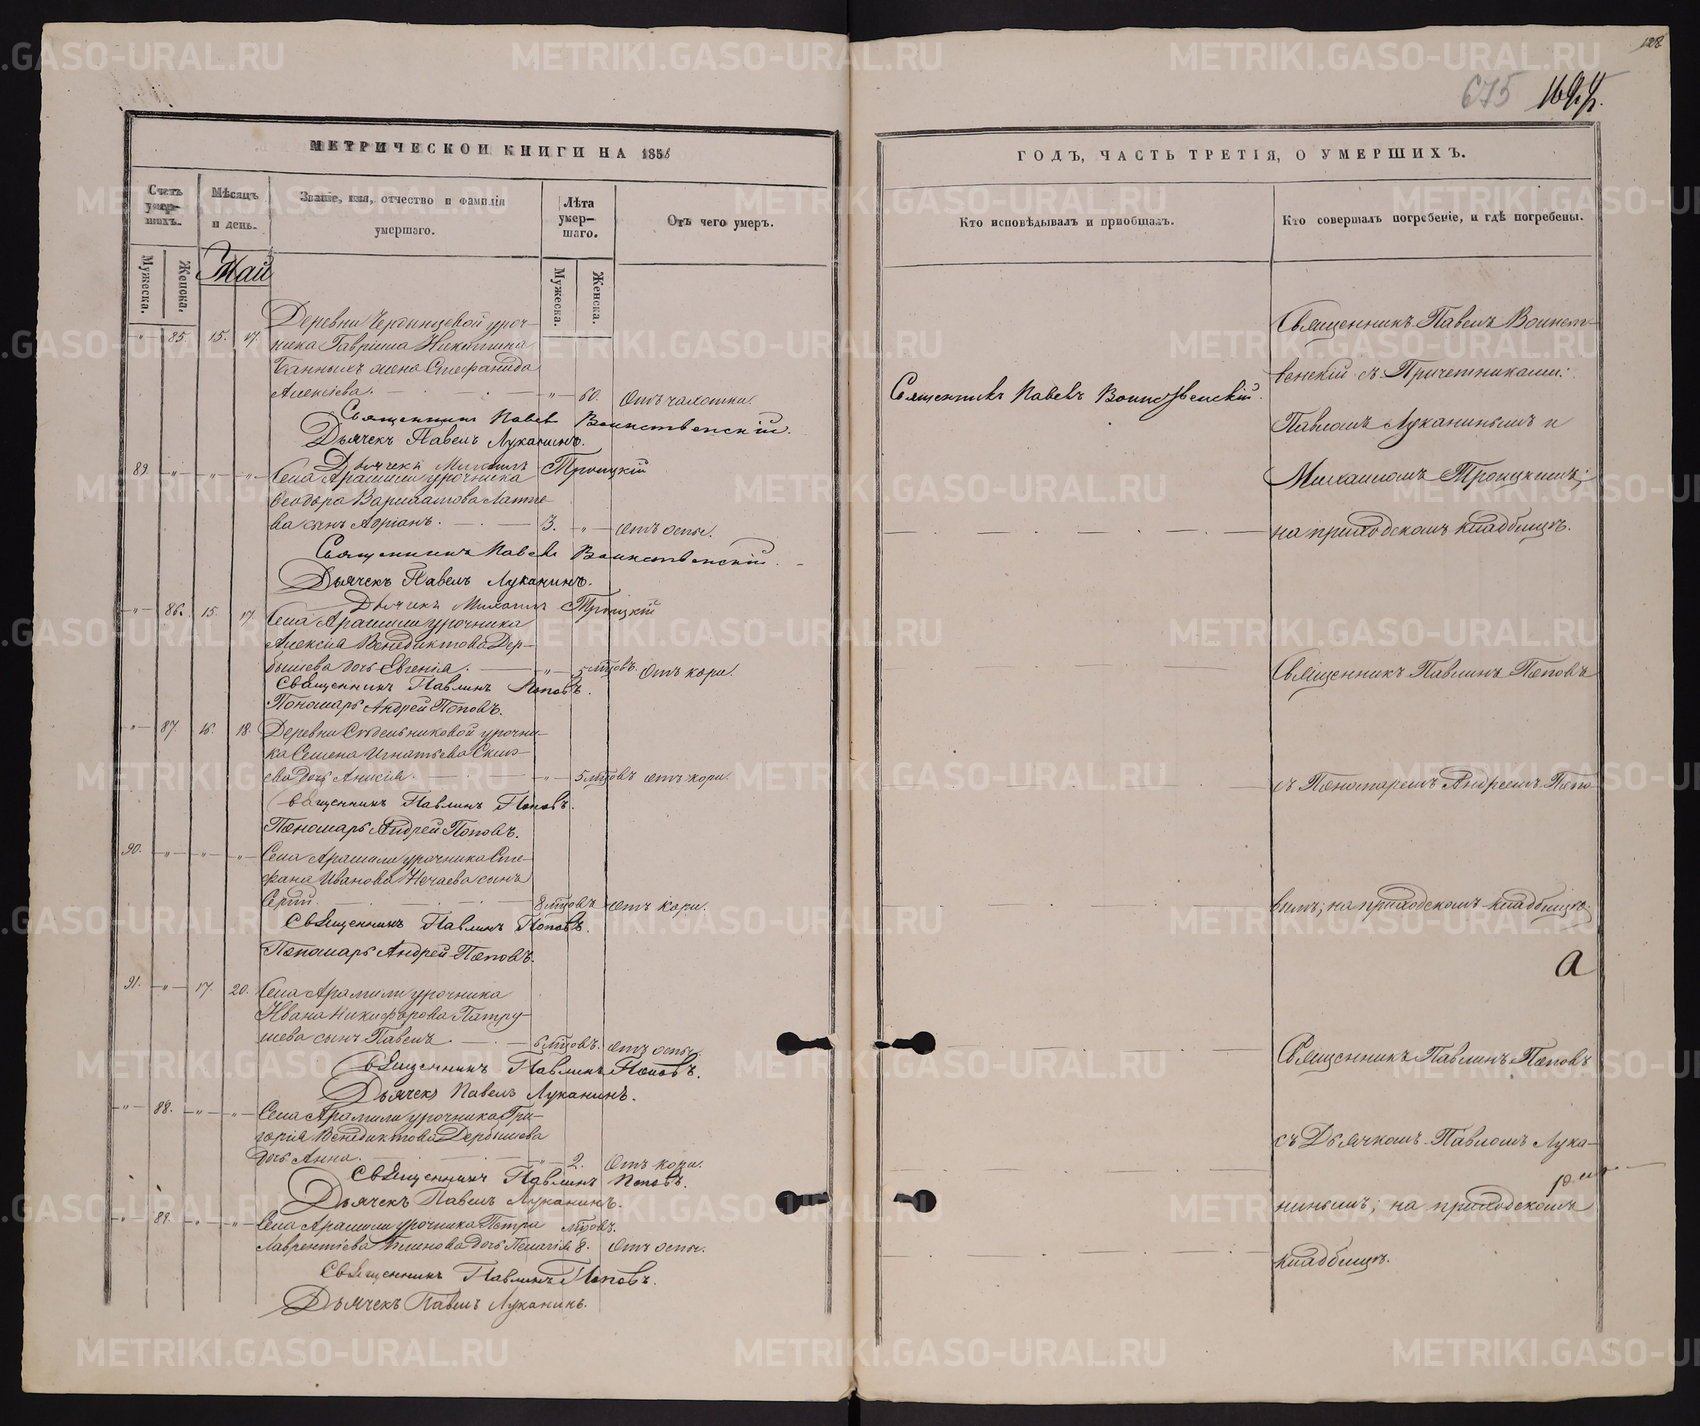 128
675 1694.
МЕТРИЧЕСКОИ КНИГИ НА 1856
ГОДЪ, ЧАСТЬ ТРЕТІЯ, О УМЕРШИХЪ.
Счетъ умер-шихъ.
Мѣсяцъ и день.
Званіе, имя, отчество и фамилія умершаго.
Лѣта умер-шаго.
Отъ чего умеръ.
Кто исповѣдывалъ и пріобщалъ.
Кто совершалъ погребеніе, и гдѣ погребены.
Мужеска.
Женска.
Май
Мужеска.
Женска.
Деревни уроч-
" 85. 15. 17. ника Гавріила Никитина
Банныхъ жена Стефанида
Алексіева. " 60. Отъ чахотки.
Священникъ Павелъ Воинственскій.
Дьячекъ Павелъ Луканинъ.
Дьячекъ Михаилъ Троицкій
89. " " " Села Арамили урочника
Ѳеодора Варлаамова Лапте-
ва сынъ Адріанъ. 3. " Отъ оспы.
Священникъ Павелъ Воинственскій.
Дьячекъ Павелъ Луканинъ.
Дьячекъ Михаилъ Троицкій
" 86. 15. 17. Села Арамили урочника
Алексія Венедиктова Дер-
бышева дочь Евгенія. " 5 мѣсцовъ. Отъ кори.
Священникъ Павлинъ Поповъ.
Пономарь Андрей Поповъ.
" 87. 16. 18. Деревни Сѣдельниковой урочни-
ка Семена Игнатьева
ева дочь Анисія. " 5 мѣсцовъ отъ кори.
Священникъ Павлинъ Поповъ.
Пономарь Андрей Поповъ.
90. " " " Села Арамили урочника Сте-
фана Иванова Нечаева сынъ
Сергій. 8 мѣсцовъ. Отъ кори.
Священникъ Павлинъ Поповъ.
Пономарь Андрей Поповъ.
91. " 17. 20. Села Арамили урочника
Ивана Никифорова Патру-
шева сынъ Павелъ. 6 мѣсцовъ. Отъ оспы.
Священникъ Павлинъ Поповъ.
Дьячекъ Павелъ Луканинъ.
" 88. " " Села Арамили урочника Гри-
горія Венедиктова Дербышева
дочь Анна. " 2. Отъ кори.
Священникъ Павлинъ Поповъ.
Дьячекъ Павелъ Луканинъ.
" 89. " " Села Арамили урочника Петра мѣсцовъ.
Лаврентіева дочь Пелагія 8. Отъ оспы.
Священникъ Павлинъ Поповъ.
Дьячекъ Павелъ Луканинъ.
Священникъ Павелъ Воинственскій.
Священникъ Павелъ Воинст-
венскій съ Причетниками:
Павломъ Луканинымъ и
Михаиломъ Троицкимъ;
на приходскомъ кладбищѣ.
Священникъ Павлинъ Поповъ
съ Пономаремъ Андреемъ Попо-
вымъ; на приходскомъ кладбищѣ.
а
Священникъ Павлинъ Поповъ
съ Дьячкомъ Павломъ Лука-
нинымъ; на приходскомъ
кладбищѣ.
METRIKI.GASO-URAL.RU